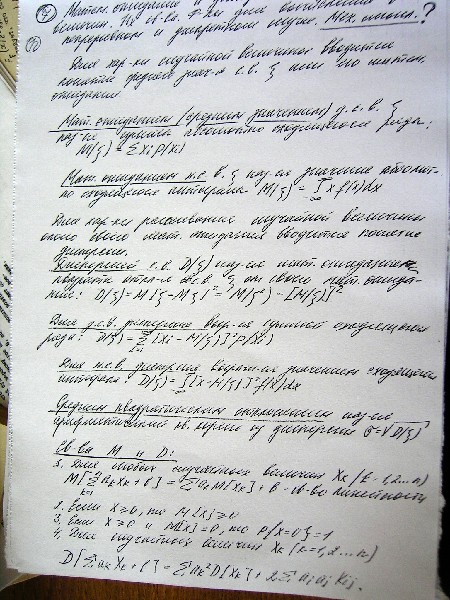 9) Матем. ожидание и
величин. Их св-ва.
непрерывном и дискретном случае. Мех. смысл.?
10
Для хар-ки случайной величины вводится
понятие среднего знач-я с.в. ξ или его матем.
ожидания.
Мат. ожиданием (средним значением) д.с.в. ξ
наз-ся сумма абсолютно сходящегося ряда:
M(ξ) = Σ xi p(xi)
Мат. ожиданием н.с.в. ξ наз-ся значение абсолют-
но сходящегося интеграла M(ξ) = ∫ x f(x)dx
Для хар-ки рассеивания случайной величины
около своего мат. ожидания вводится понятие
дисперсии.
Дисперсией с.в. D(ξ) наз-ся мат. ожидание
квадрата откл-я с.в. ξ от своего мат. ожида-
ния: D(ξ) = M[ξ - Mξ]² = M(ξ²) - [M(ξ)]²
Для д.с.в. дисперсия выр-ся суммой сходящегося
ряда: D(ξ) = Σ [xi - M(ξ)]² p(xi)
Для н.с.в. дисперсия выраж-ся значением сходящегося
интеграла: D(ξ) = ∫ [x - M(ξ)]² f(x)dx
Средним квадратическим отклонением наз-ся
арифметический кв. корень из дисперсии σ = √D(ξ)
Св-ва M и D:
1. Для любых случайных величин Xk (k=1,2...n)
M[Σ ak Xk + b] = Σ ak M[Xk] + b - св-во линейности
2. Если X ≥ 0, то M[X] ≥ 0
3. Если X ≥ 0 и M[X] = 0, то p{x=0} = 1
4. Для случайных величин Xk (k=1,2...n)
D[Σ ak Xk + b] = Σ ak² D[Xk] + 2ΣΣ ai aj kij.